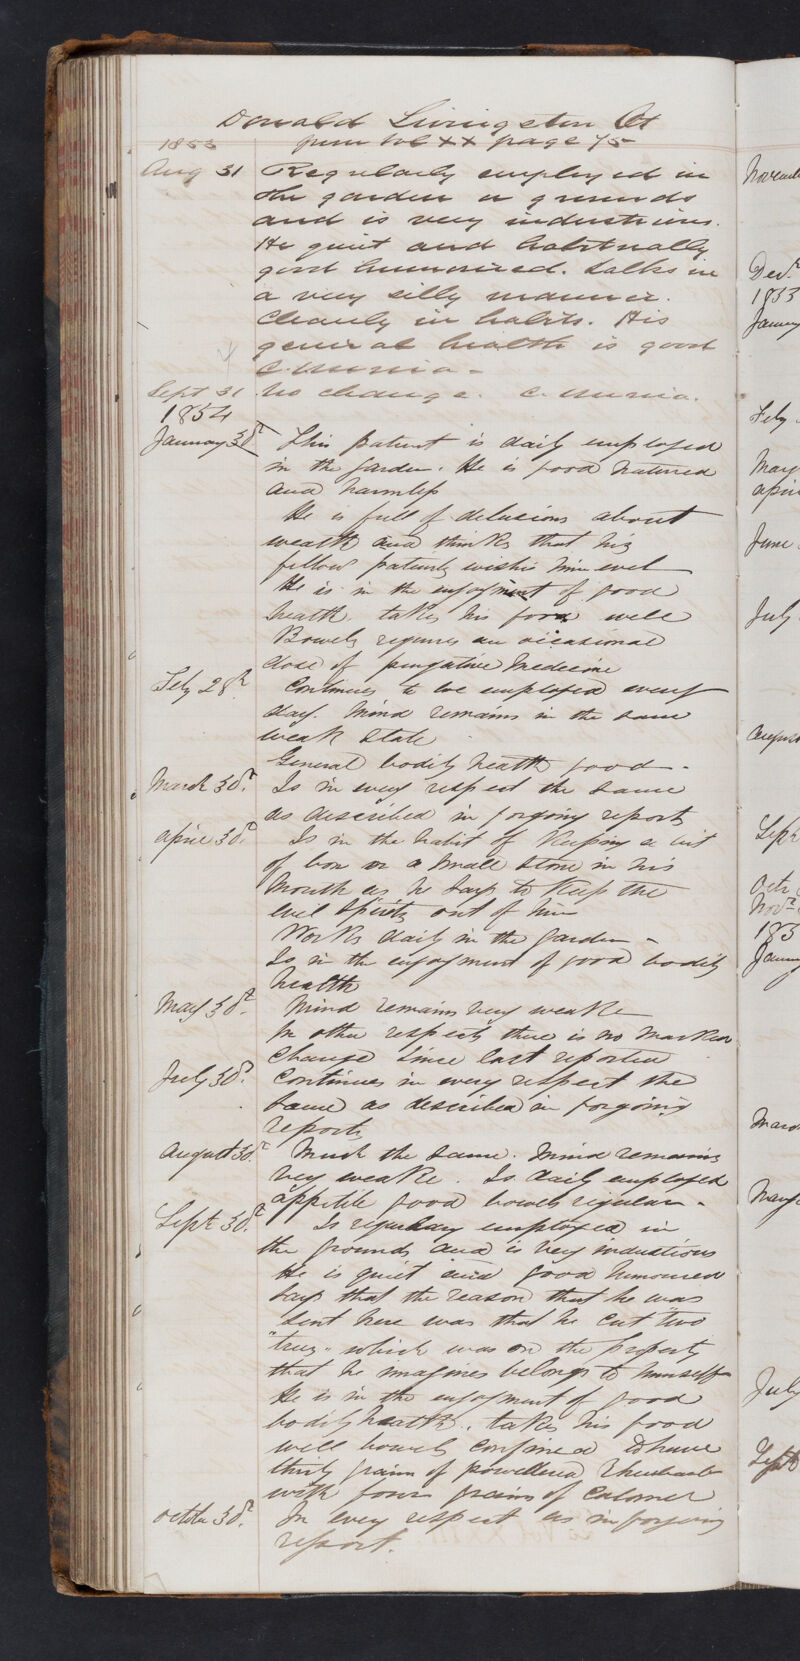 Donald Livingston Ct
1853 from Vol XX page 75
Aug 31 Regularly employed in
the garden or grounds
and is very industrious.
He quiet and habitually
good humoured. Talks in
a very silly manner.
Cleanly in habits. His
general health is good
Sept 31 No change.
1854
January 30th This patient is daily employed
in the garden. He is good natured
and harmless
He is full of delusions about
wealth and thinks that his
fellow patients wishes him evil
He is in the enjoyment of good
health takes his food well
Bowels requires an occasional
dose of purgative medicine
Feby 28th Continues to be employed every
day. Mind remains in the same
weak state
General bodily health good -
March 30th Is in every respect the same
as described in forgoing reports
April 30th Is in the habit of keeping a bit
of bone or a small stone in his
mouth as he says to keep the
evil spirits out of him
Works daily in the garden -
Is in the enjoyment of good bodily
health
May 30th Mind remains very weake
In other respects there is no marked
change since last reported
July 30th Continues in every respect the
same as described in forgoing
reports
August 30th Much the same. Mind remains
very weake. Is daily employed
appetite good bowels regular -
Sept 30th Is regulary employed in
the grounds and is very industious
He is quiet and good humoured
says that the reason that he was
sent here was that he cut two
"trees" which was on the property
that he imagines belongs to himself
He is in the enjoyment of good
bodily health. takes his food
well bowels confined To have
thirty grains of powdered Rheubarb
with four grains of Calomel
October 30th In every respect as in forgoing
report.
Novemb
Decr
1853
January
Feby
May
April
June
July
August
Sept
Octr
Novr
185
Janu
Marc
May
July
Sept